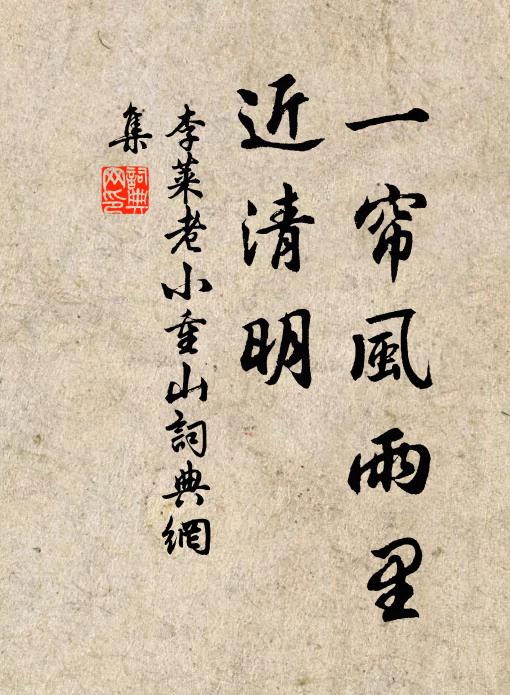 一帘風雨里
近清明
李萊老小重山詞典網
集
詞典
网印